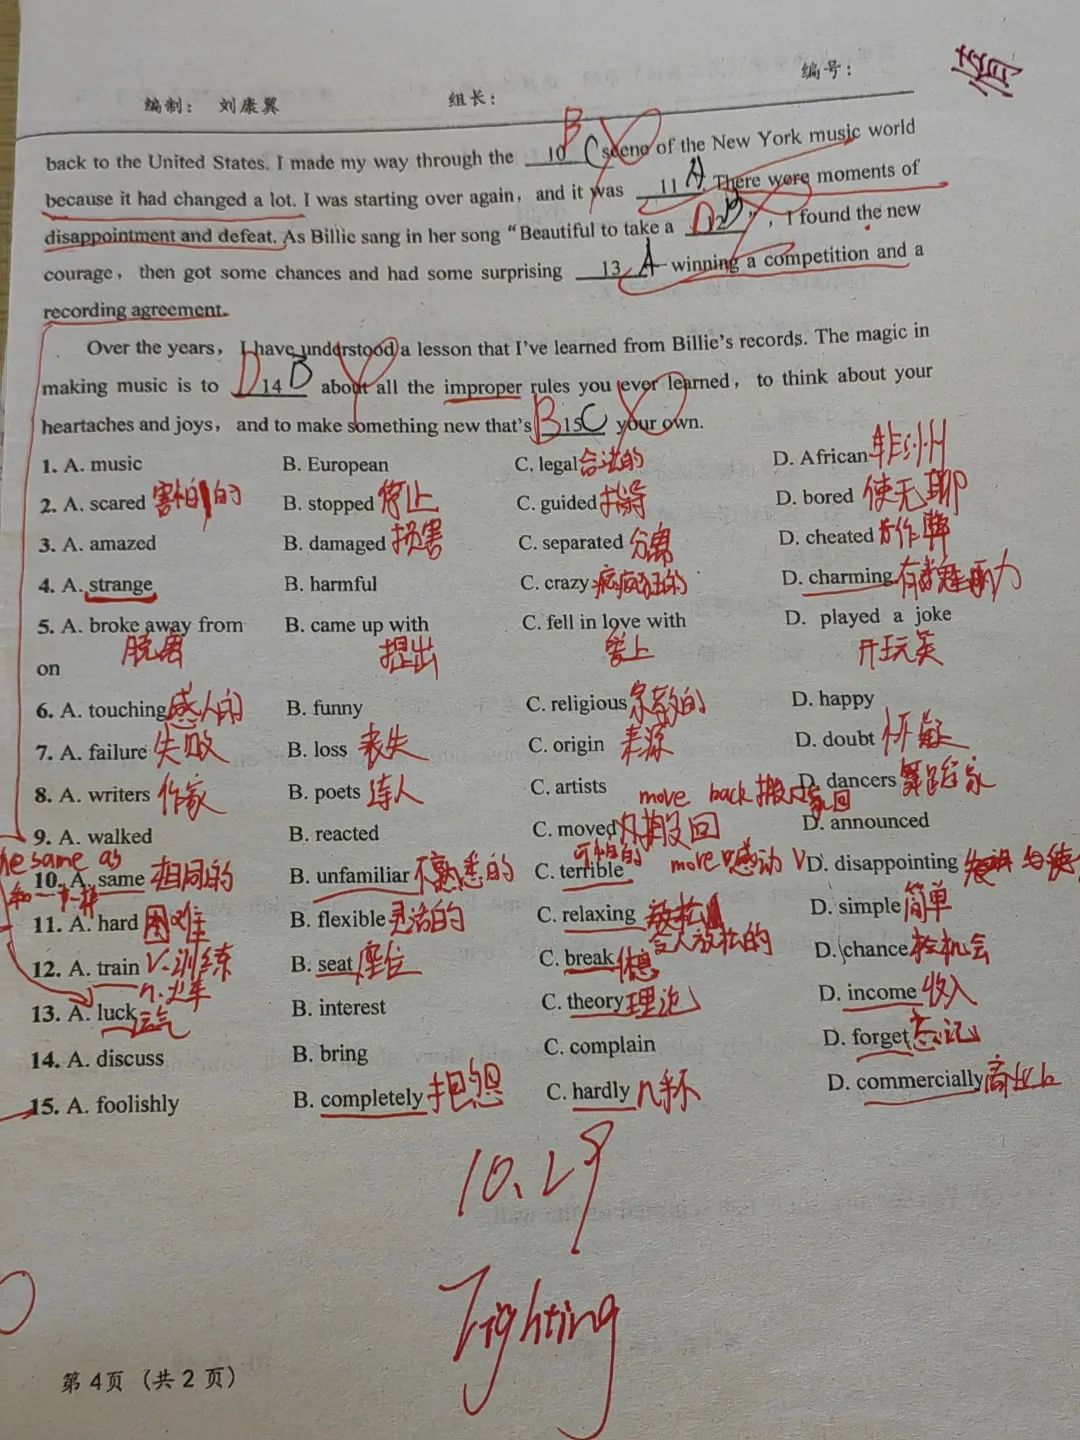 编制： 刘康翼 组长： 编号：
back to the United States. I made my way through the B 10 C scene of the New York music world
because it had changed a lot. I was starting over again, and it was 11 A. There were moments of
disappointment and defeat. As Billie sang in her song “Beautiful to take a D 12 B”, I found the new
courage, then got some chances and had some surprising 13 A — winning a competition and a
recording agreement.
Over the years, I have understood a lesson that I’ve learned from Billie’s records. The magic in
making music is to D 14 B about all the improper rules you ever learned, to think about your
heartaches and joys, and to make something new that’s B 15 C your own.
1. A. music B. European C. legal 合法的 D. African 非洲
2. A. scared 害怕的 B. stopped 停止 C. guided 指导 D. bored 使无聊
3. A. amazed B. damaged 损害 C. separated 分离 D. cheated 作弊
4. A. strange B. harmful C. crazy 疯狂的 D. charming 有魅力
5. A. broke away from B. came up with C. fell in love with D. played a joke
脱离 提出 爱上 开玩笑
on
6. A. touching 感人的 B. funny C. religious 宗教的 D. happy
7. A. failure 失败 B. loss 丧失 C. origin 来源 D. doubt 怀疑
8. A. writers 作家 B. poets 诗人 C. artists D. dancers 舞蹈家
move back 搬回
9. A. walked B. reacted C. moved 搬回 D. announced
the same as 可怕的 move 感动 V
10. A. same 相同的 B. unfamiliar 不熟悉的 C. terrible D. disappointing
和一样
11. A. hard 困难 B. flexible 灵活的 C. relaxing 放松 D. simple 简单
令人放松的
12. A. train V.训练 B. seat 座位 C. break 休息 D. chance 机会
n.火车
13. A. luck 运气 B. interest C. theory 理论 D. income 收入
14. A. discuss B. bring C. complain D. forget 忘记
15. A. foolishly B. completely 抱怨 C. hardly 几乎不 D. commercially 商业上
10.29
Fighting
第 4页（共 2 页）